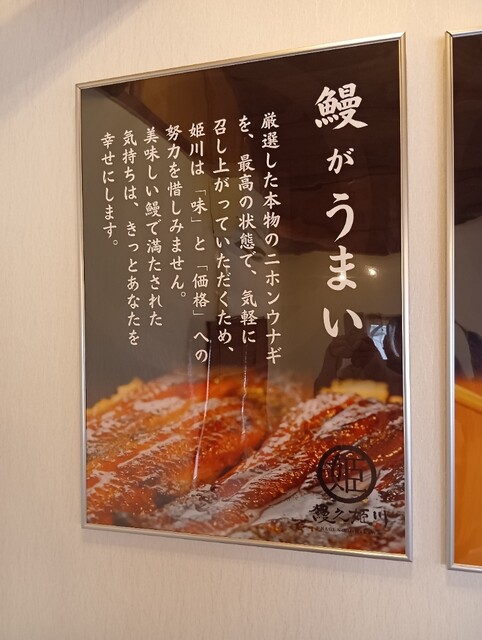 鰻がうまい
厳選した本物のニホンウナギ
を、最高の状態で、気軽に
召し上がっていただくため、
姫川は「味」と「価格」への
努力を惜しみません。
美味しい鰻で満たされた
気持ちは、きっとあなたを
幸せにします。
姫
鰻久姫川